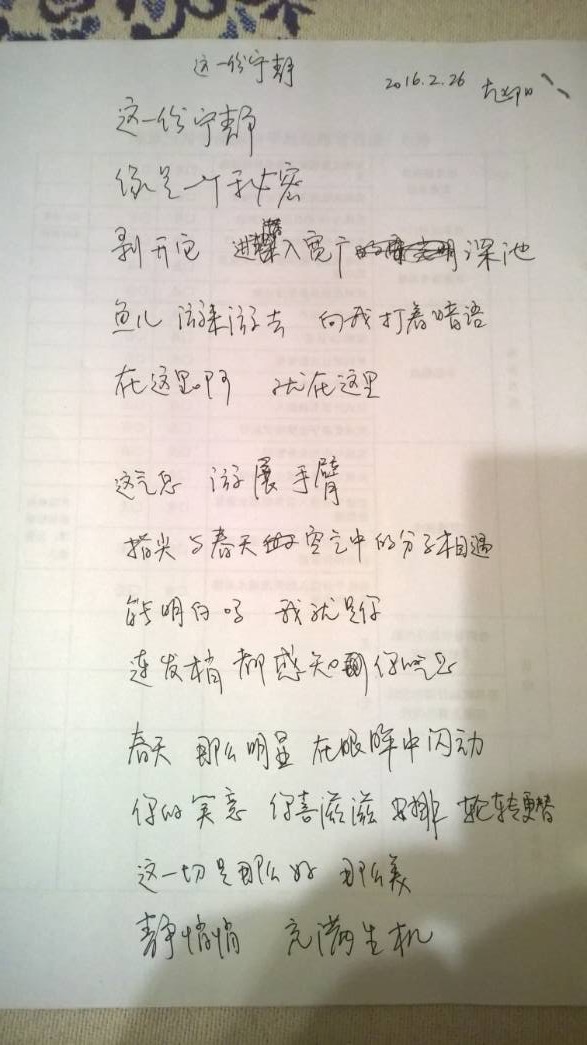 这一份宁静
2016.2.26
这一份宁静
像是一个秘密
剥开它 进入宽广深池
鱼儿 游来游去 向我打着暗语
在这里啊 就在这里
这气息 游展手臂
指尖与春天空气中的分子相遇
能明白吗 我就是你
连发梢都感知到你的气息
春天 那么明显 在眼眸中闪动
你的笑意 你喜滋滋 安排 轮转更替
这一切是那么好 那么美
静悄悄 充满生机